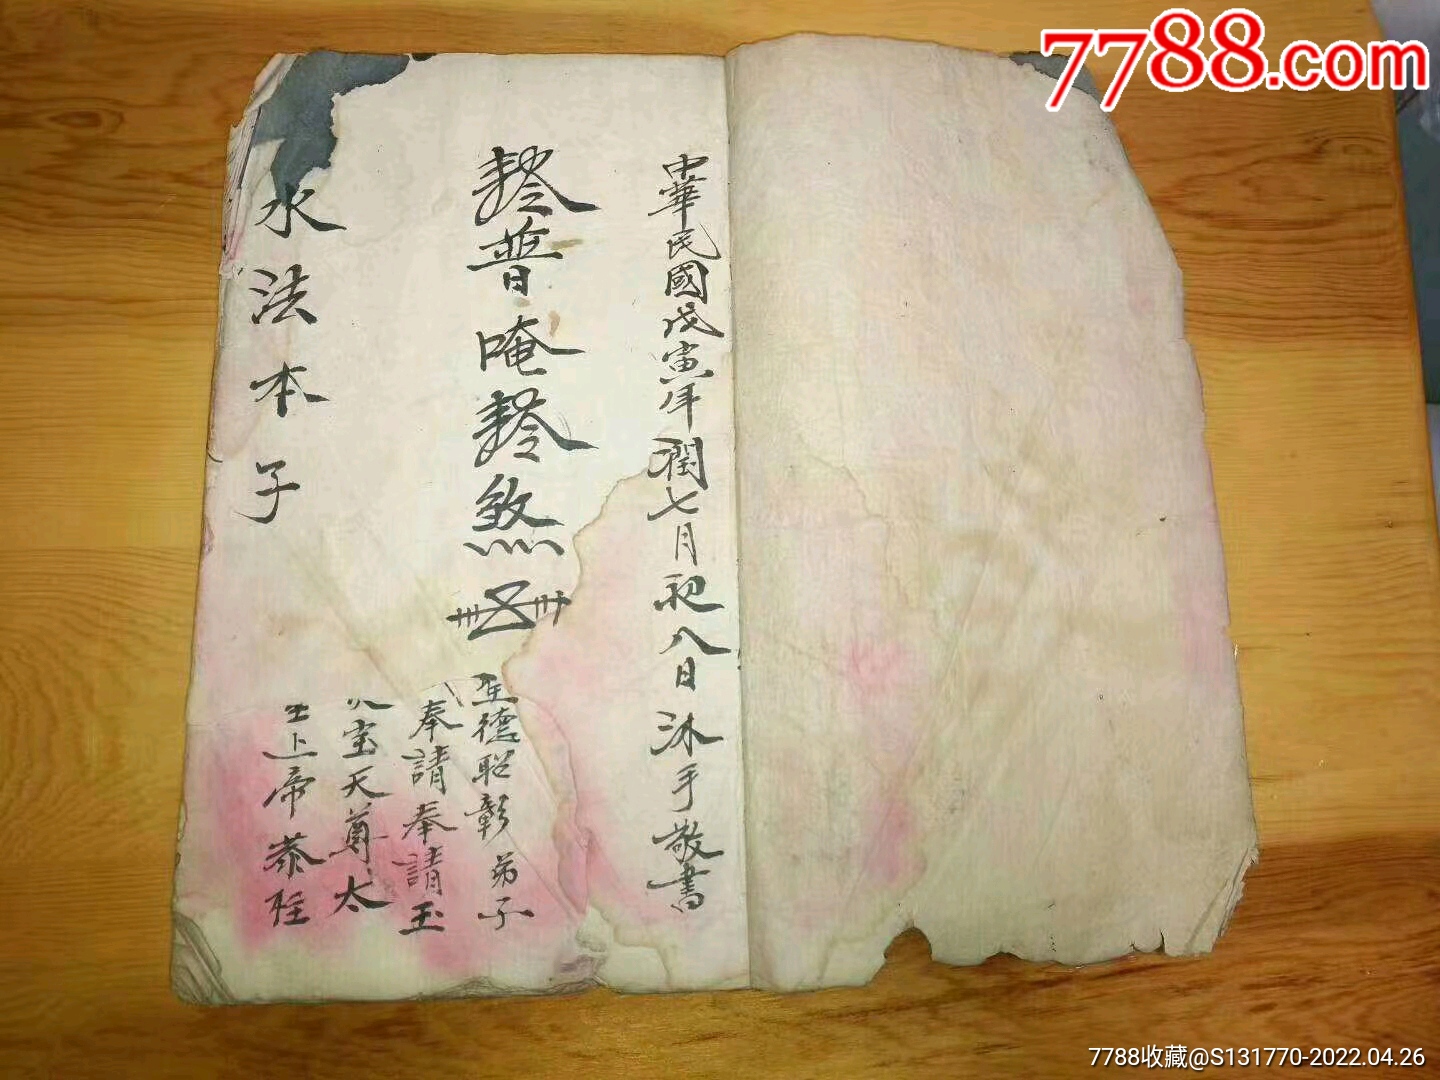 7788.com
中華民國戊寅年潤七月初八日沐手敬書
普唵
煞
水法本子
德昭彰弟子
奉請奉請玉
宝天尊太
上帝恭陞
7788收藏@S131770-2022.04.26